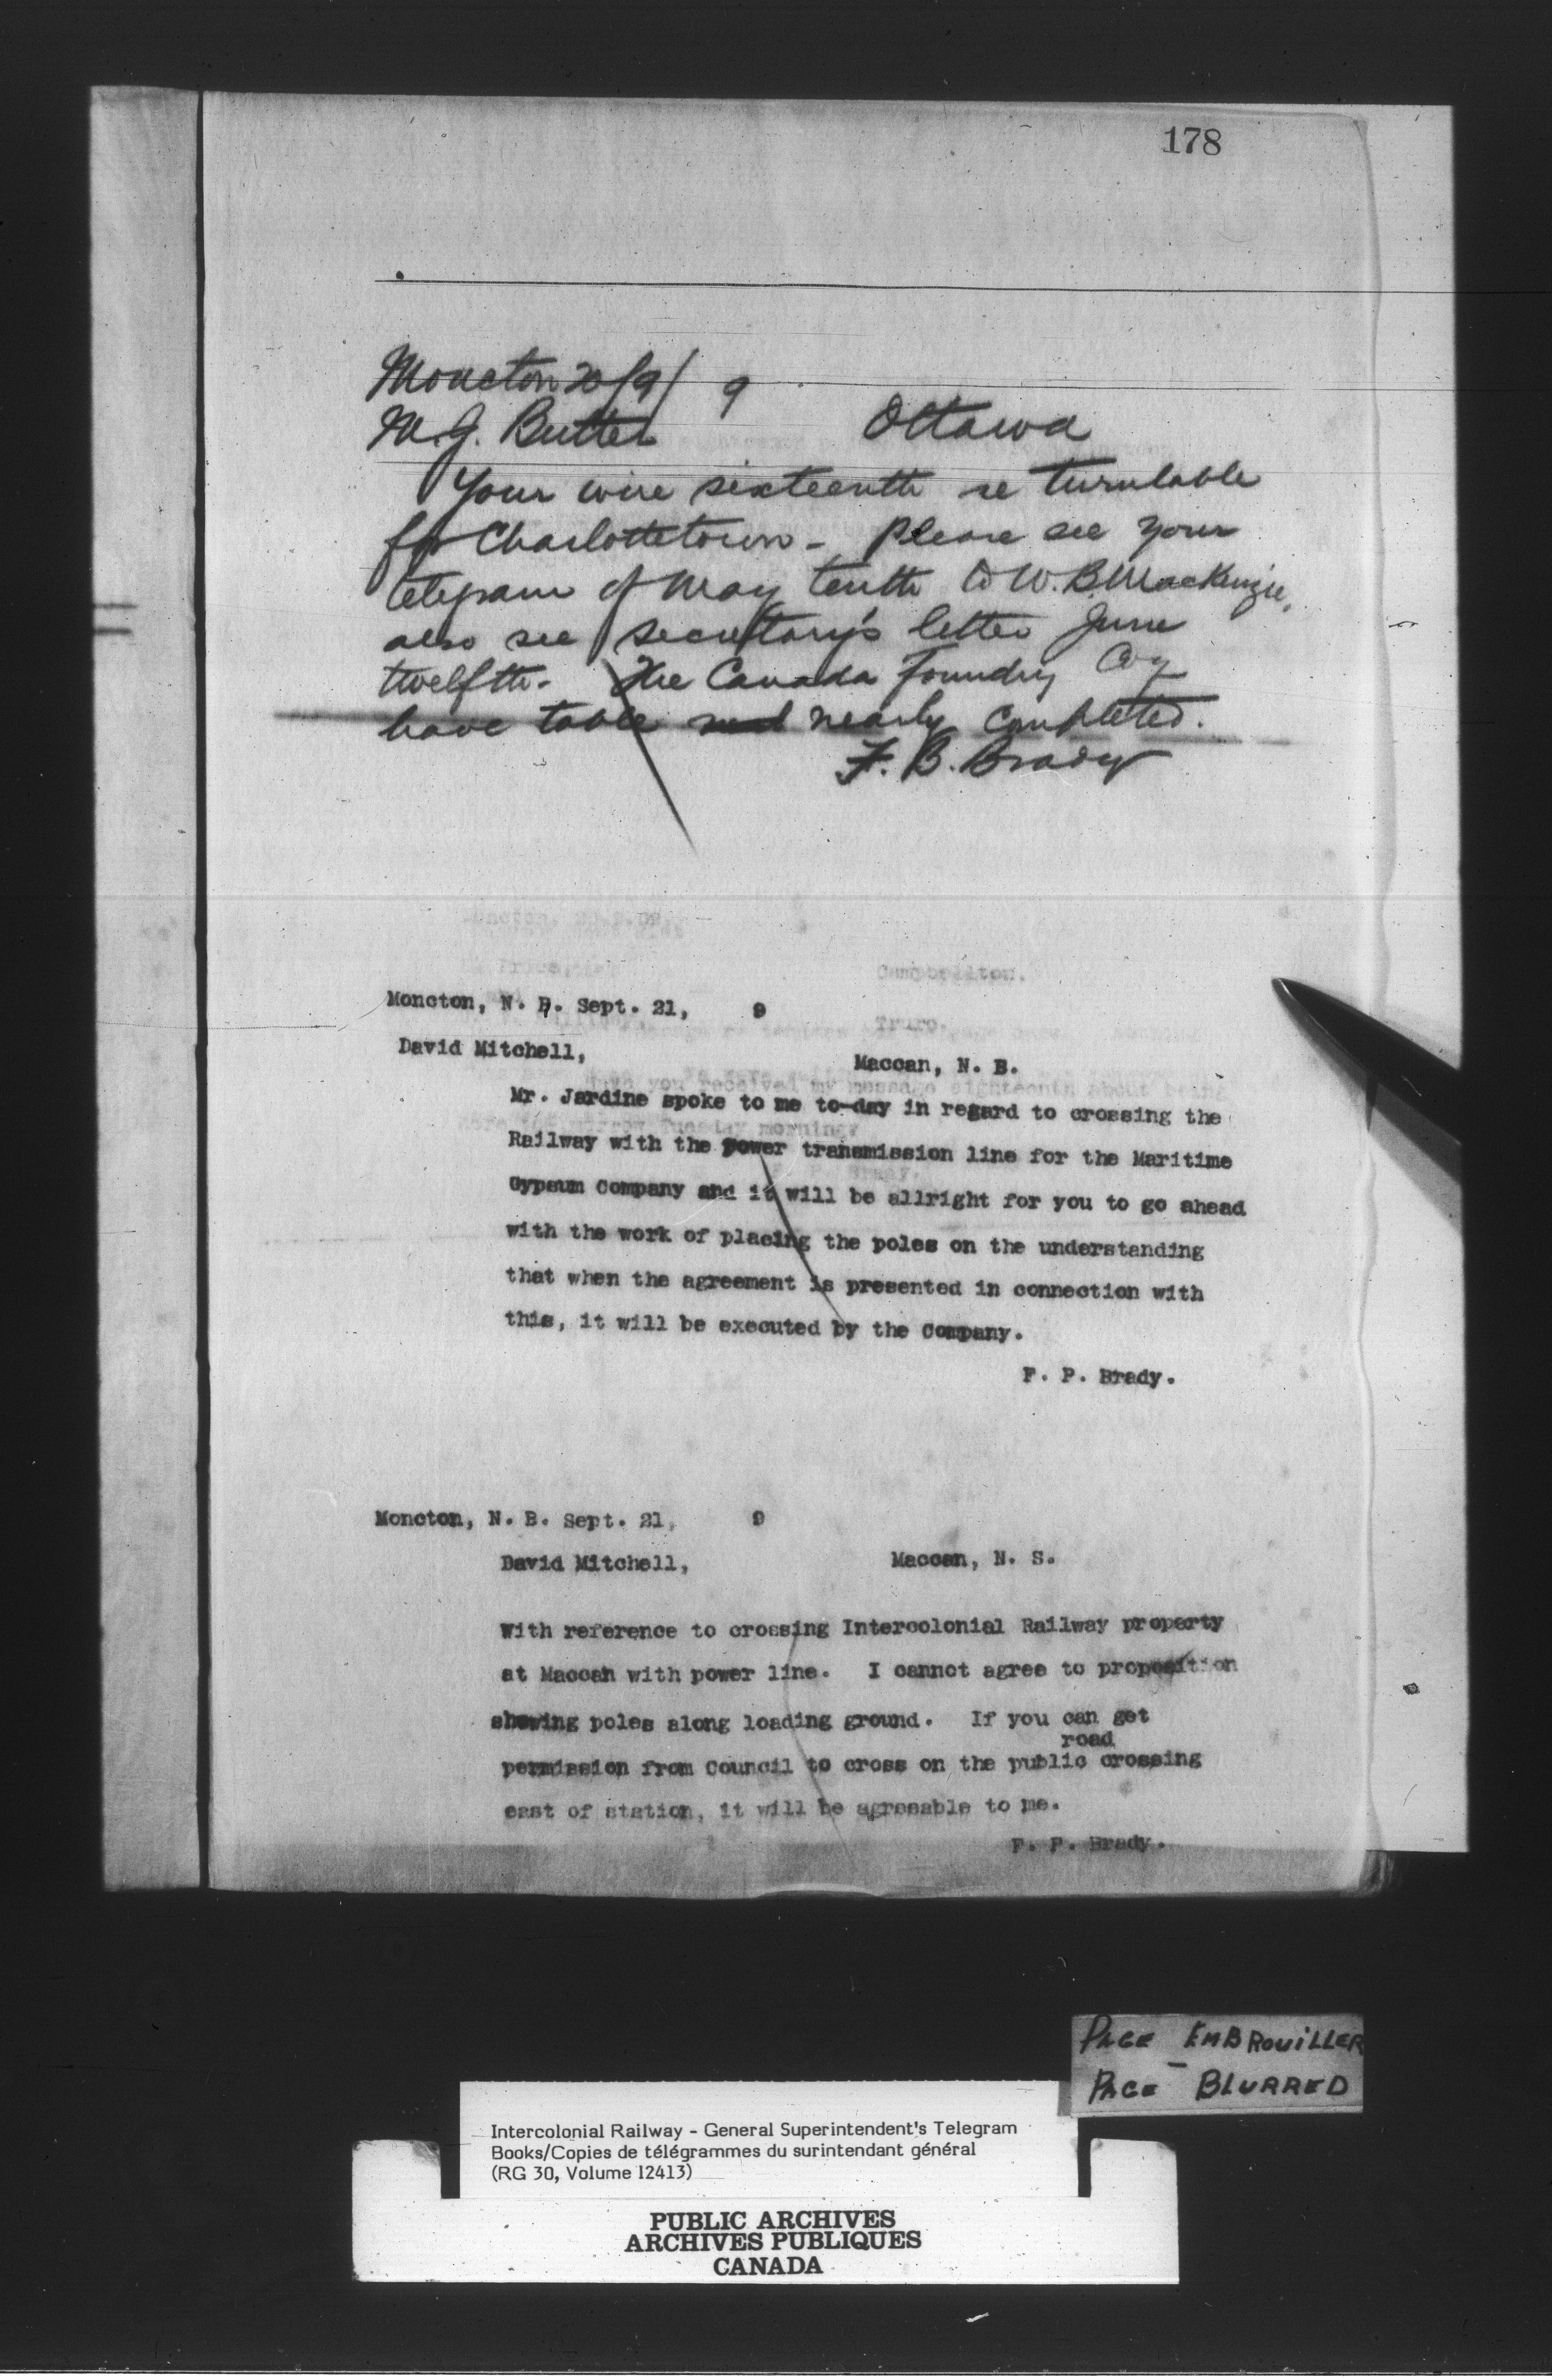 178
Moncton 20/9/ 9
M. J. Butler Ottawa
Your wire sixteenth re turntable
for Charlottetown - Please see your
telegram of May tenth to W. B. MacKenzie,
also see secretary's letter June
twelfth. The Canada Foundry Coy
have table nearly completed.
F. B. Brady
Moncton, N. B. Sept. 21, 9
David Mitchell,
Maccan, N. B.
Mr. Jardine spoke to me to-day in regard to crossing the
Railway with the power transmission line for the Maritime
Gypsum Company and it will be allright for you to go ahead
with the work of placing the poles on the understanding
that when the agreement is presented in connection with
this, it will be executed by the Company.
F. P. Brady.
Moncton, N. B. Sept. 21, 9
David Mitchell, Maccan, N. S.
With reference to crossing Intercolonial Railway property
at Maccan with power line. I cannot agree to proposition
showing poles along loading ground. If you can get
road
permission from Council to cross on the public crossing
east of station, it will be agreeable to me.
F. P. Brady.
PAGE EMBROUILLER
PAGE - BLURRED
Intercolonial Railway - General Superintendent's Telegram
Books/Copies de télégrammes du surintendant général
(RG 30, Volume 12413)
PUBLIC ARCHIVES
ARCHIVES PUBLIQUES
CANADA